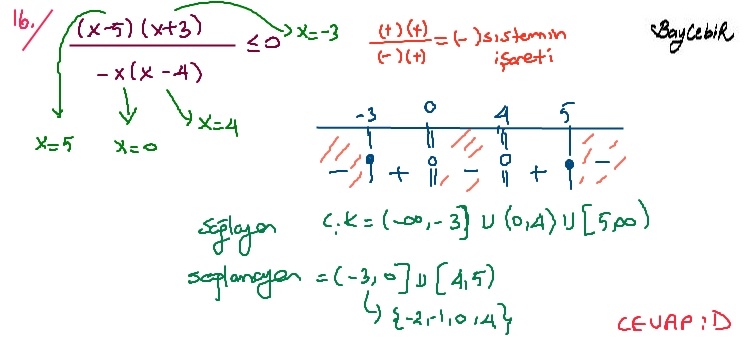 16./ (x-5)(x+3) / -x(x-4) ≤ 0
x=-3
(+)(+) / (-)(+) = (-) sistemin işareti
BayCebiR
x=5 x=0 x=4
-3 0 4 5
- + - + -
sağlayan Ç.K = (-∞, -3] ∪ (0,4) ∪ [5,∞)
sağlamayan = (-3, 0] ∪ [4,5)
↳ {-2,-1,0,4}
CEVAP: D